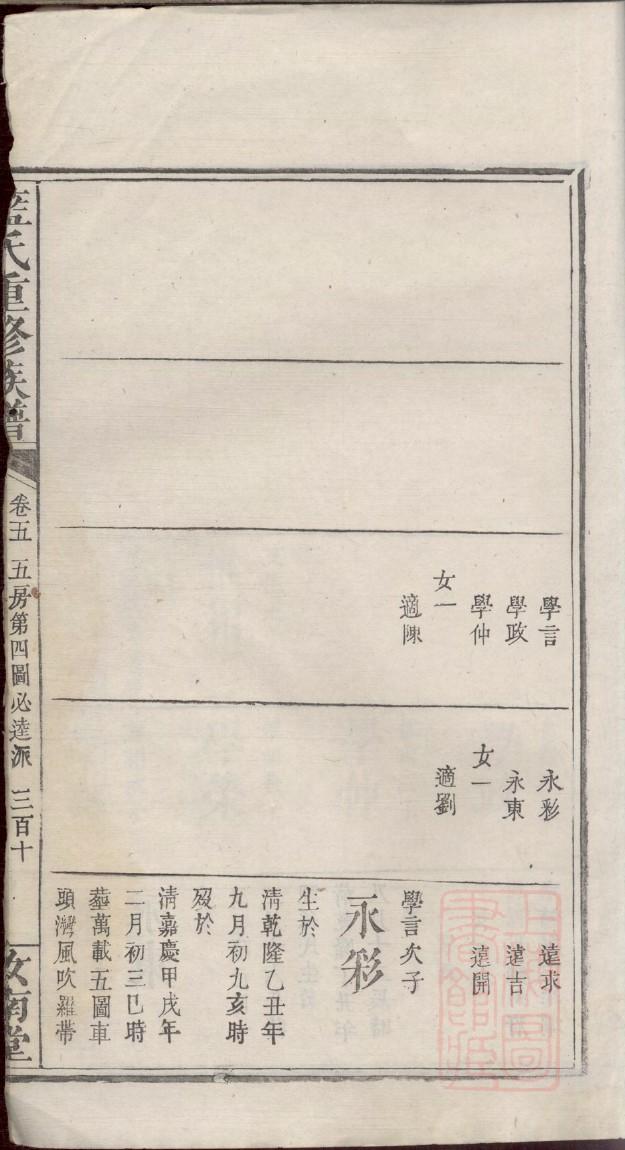 學言
學政
學仲
女一
適陳
永彩
永東
女一
適劉
遠求
遠吉
遠開
學言次子
永彩
生於
清乾隆乙丑年
九月初九亥時
歿於
清嘉慶甲戌年
二月初三巳時
塟萬載五圖車
頭灣風吹羅帶
藍氏重修族譜
卷五 五房第四圖必達派 三百十
汝南堂